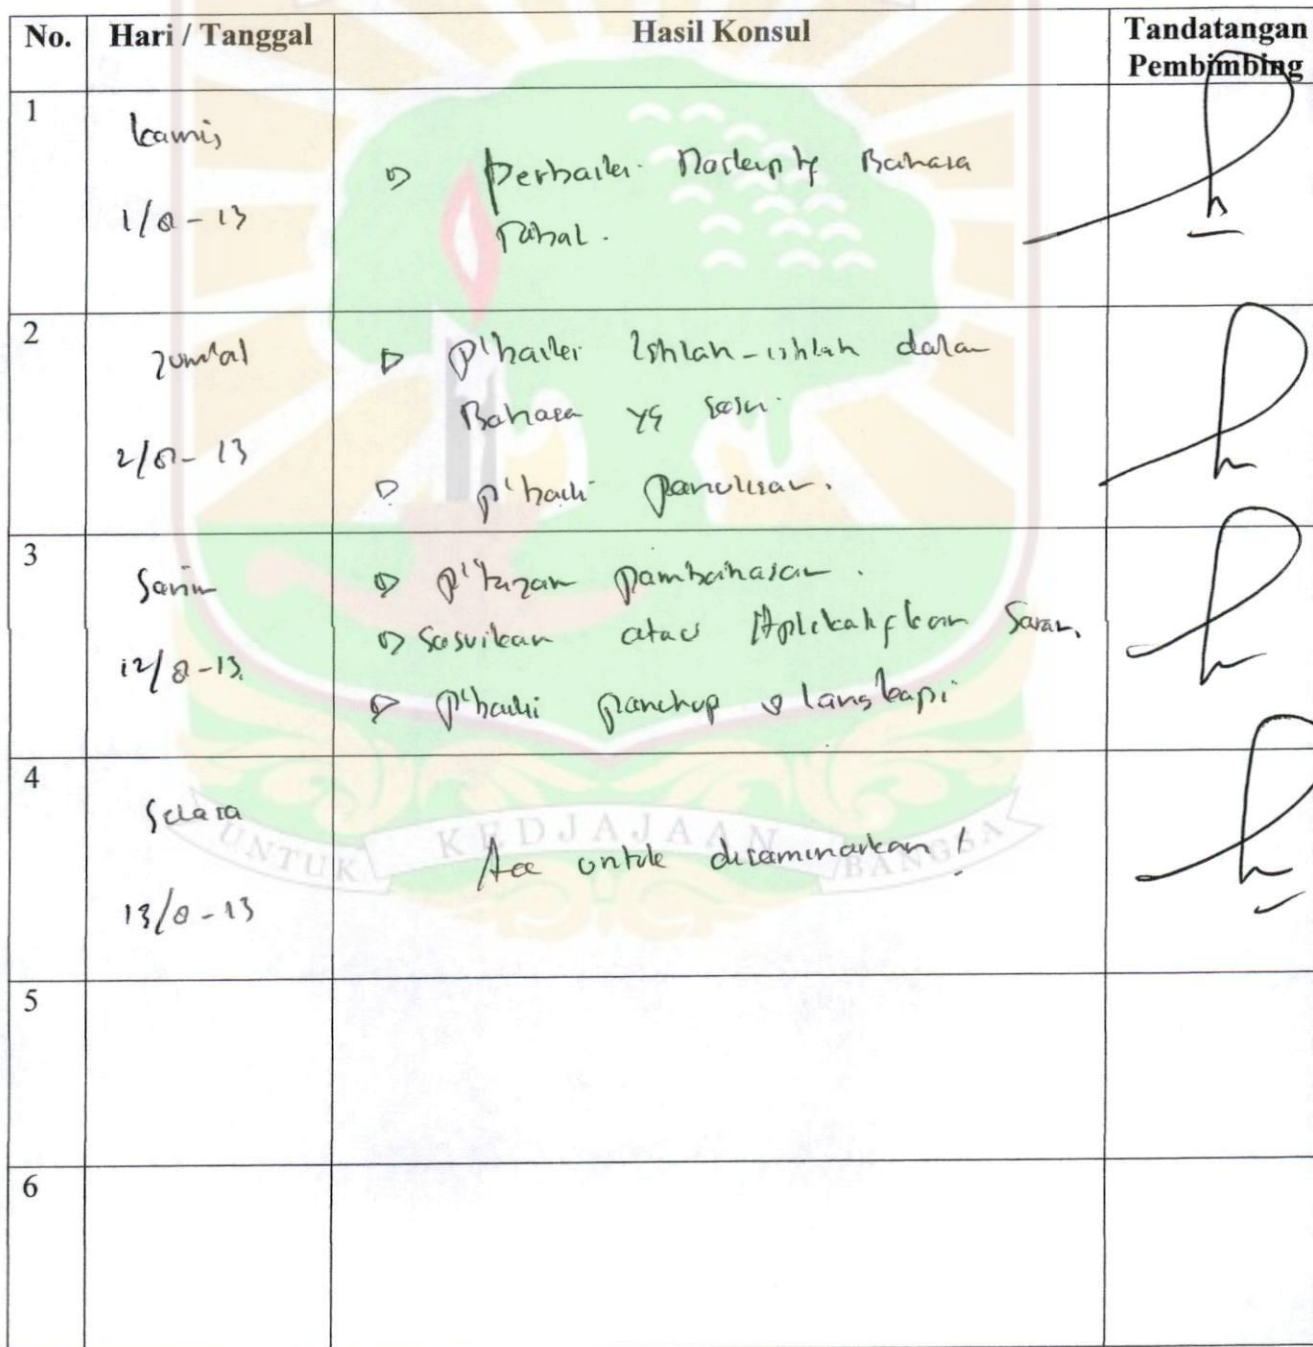 No. Hari / Tanggal Hasil Konsul Tandatangan
Pembimbing
1
Kamis
1/8 - 13
Perbaiki Bahasa
2
Jum'at
2/8 - 13
P'baiki Istilah-istilah dalam
Bahasa yg
p'baiki penulisan.
3
Senin
12/8 - 13.
P'tajam pembahasan.
Sesuikan atau Aplikatifkan Saran.
P'baiki penutup & lengkapi
4
Selasa
13/8 - 13
Acc untuk diseminarkan !
UNTUK KEDJAJAAN BANGSA
5
6